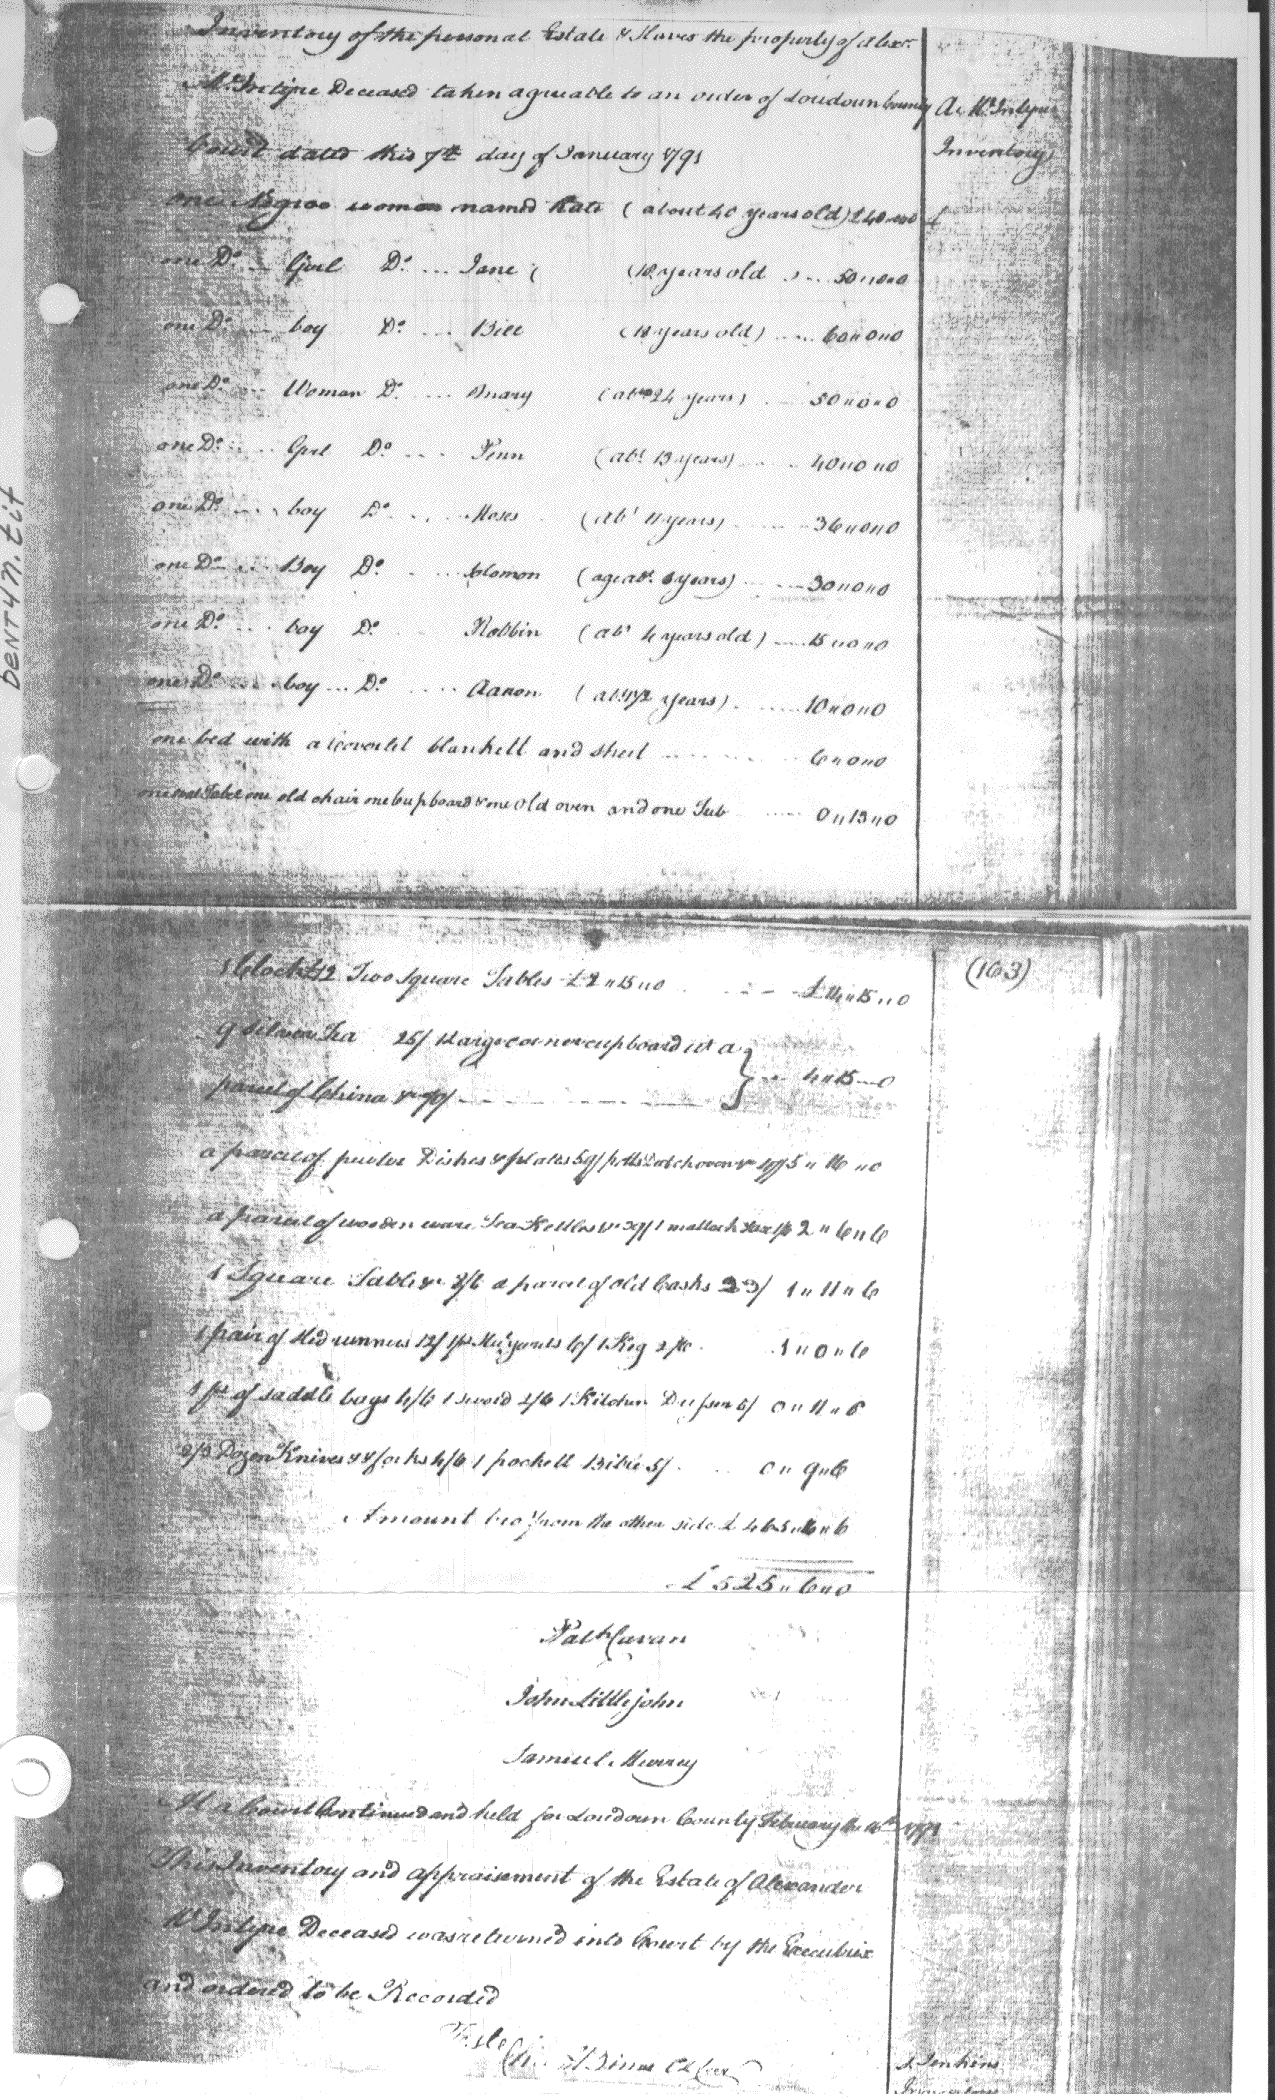 Inventory of the personal Estate & Slaves the property of Alexr.
McIntyre Deceased taken agreeable to an order of Loudoun County
A. McIntyre
Inventory
Court dated this 7th day of January 1791
one Negroe woman named Kate ( about 40 years old ) £40"0"0
one Do. Girl Do. ... Jane ( (18 years old ) ... 50"0"0
one Do. boy Do. ... Bill (18 years old) .... 60"0"0
one Do. ... Woman Do. .... (abt. 24 years) ... 50"0"0
one Do. .... Girl Do. .... Fenn (abt. 13 years) .... 40"0"0
one Do. .... boy Do. .... Moses (abt 11 years) .... 36"0"0
one Do. .... Boy Do. .... Solomon (age abt. years) .... 30"0"0
one Do. .... boy Do. Robbin (abt 4 years old) .... 15"0"0
one Do. .... boy ... Do. .... Aaron ( years) .... 10"0"0
one bed with a Coverlet blankett and sheet .... 6"0"0
one Table one old chair one Cupboard & one old oven and one Tub .... 0"13"0
(163)
1 Clock £12 Two Square Tables £2"15"0 £14"15"0
9 Silver Tea 25/ 1 Large corner cupboard wt a
parcel of China & 70/ } ... 4"15"0
a parcel of pewter Dishes & plates 59/ potts Dutch oven & 5"16"0
a parcel of wooden ware Tea Kettles & 1 mattock 2"6"6
1 Square Table & 8/6 a parcel of old Casks 23/ 1"11"6
1 pair of 12/ 6/ 1 Keg 2/6 1"0"6
1 pr of saddle bags 4/6 1 sword 2/6 1 Kitchen 5/ 0"11"6
2/3 Dozen Knives & forks 4/6 1 pockett Bible 5/ 0"9"6
Amount bro't from the other side £ 465"6
£525"6"0
Patk Cavan
John Littlejohn
Samuel Murrey
At a Court Continued and held for Loudoun County February the 1791
This Inventory and appraisement of the Estate of Alexander
McIntyre Deceased was returned into Court by the Executrix
and ordered to be Recorded
Teste
Chs. Binns Cl Cur
Jenkins
Inventory
Dent47n.tif